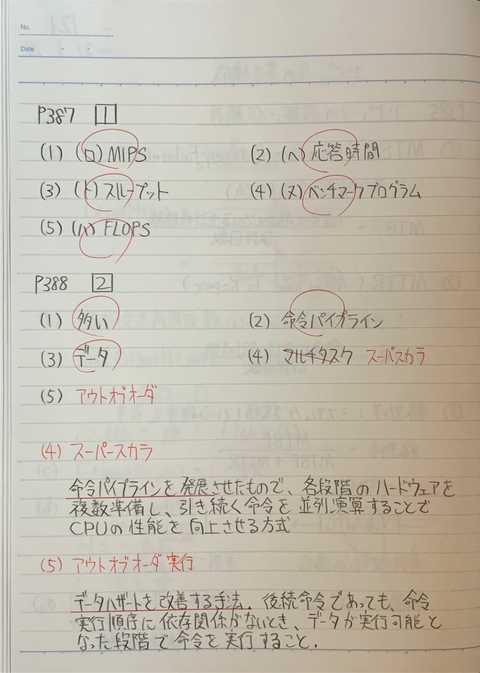 No.
Date
P387 1
(1) (ロ) MIPS (2) (ヘ) 応答時間
(3) (ト) スループット (4) (ヌ) ベンチマークプログラム
(5) (ハ) FLOPS
P388 2
(1) 多い (2) 命令パイプライン
(3) データ (4) マルチタスク スーパスカラ
(5) アウトオブオーダ
(4) スーパースカラ
命令パイプラインを発展させたもので、各段階のハードウェアを
複数準備し、引き続く命令を並列演算することで
CPUの性能を向上させる方式
(5) アウトオブオーダ実行
データハザートを改善する手法。後続命令であっても、命令
実行順序に依存関係がないとき、データが実行可能と
なった段階で命令を実行すること.